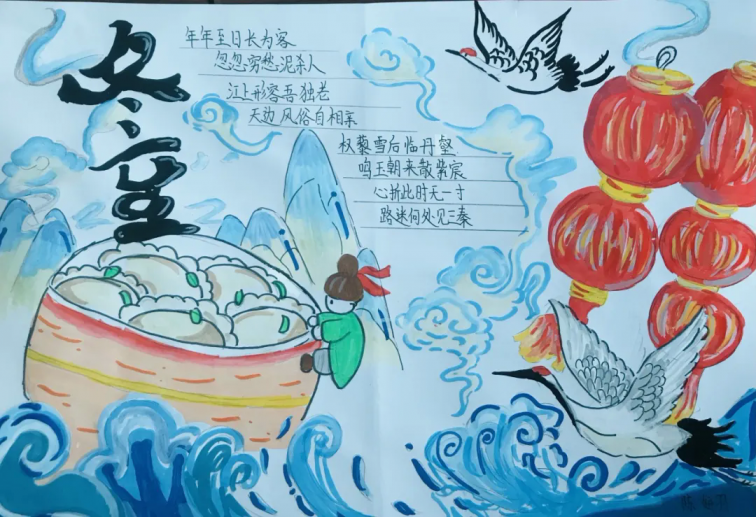 冬至
年年至日长为客
忽忽穷愁泥杀人
江上形容吾独老
天边风俗自相亲
杖藜雪后临丹壑
鸣玉朝来散紫宸
心折此时无一寸
路迷何处见三秦